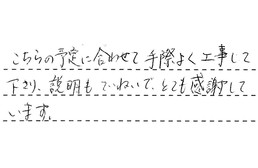 こちらの予定に合わせて手際よく工事して
下さり、説明もていねいで、とても感謝して
います。